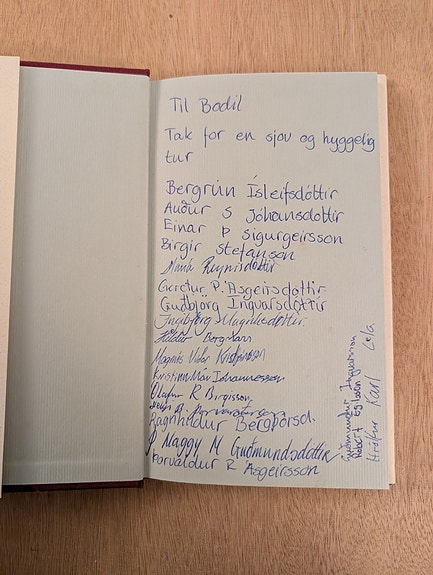 Til Bodil
Tak for en sjov og hyggelig
tur
Bergrún Ísleifsdóttir
Auður S Jóhansdottir
Einar Þ Sigurgeirsson
Birgir Stefanson
María Reynisdóttir
Gerður P. Ásgeirsdottir
Guðbjörg Ingvarsdóttir
Ingibjörg Magnúsdóttir
Hildur Bergmann
Magnús Viðar Kristjánsson
Kristinn Már Jóhannesson
Ólafur R Birgisson
Ragnhildur Bergþórsd.
Maggy M Guðmundsdóttir
Þorvaldur R Ásgeirsson
Guðmundur Ingvarsson
Robert Egilsson
Karl